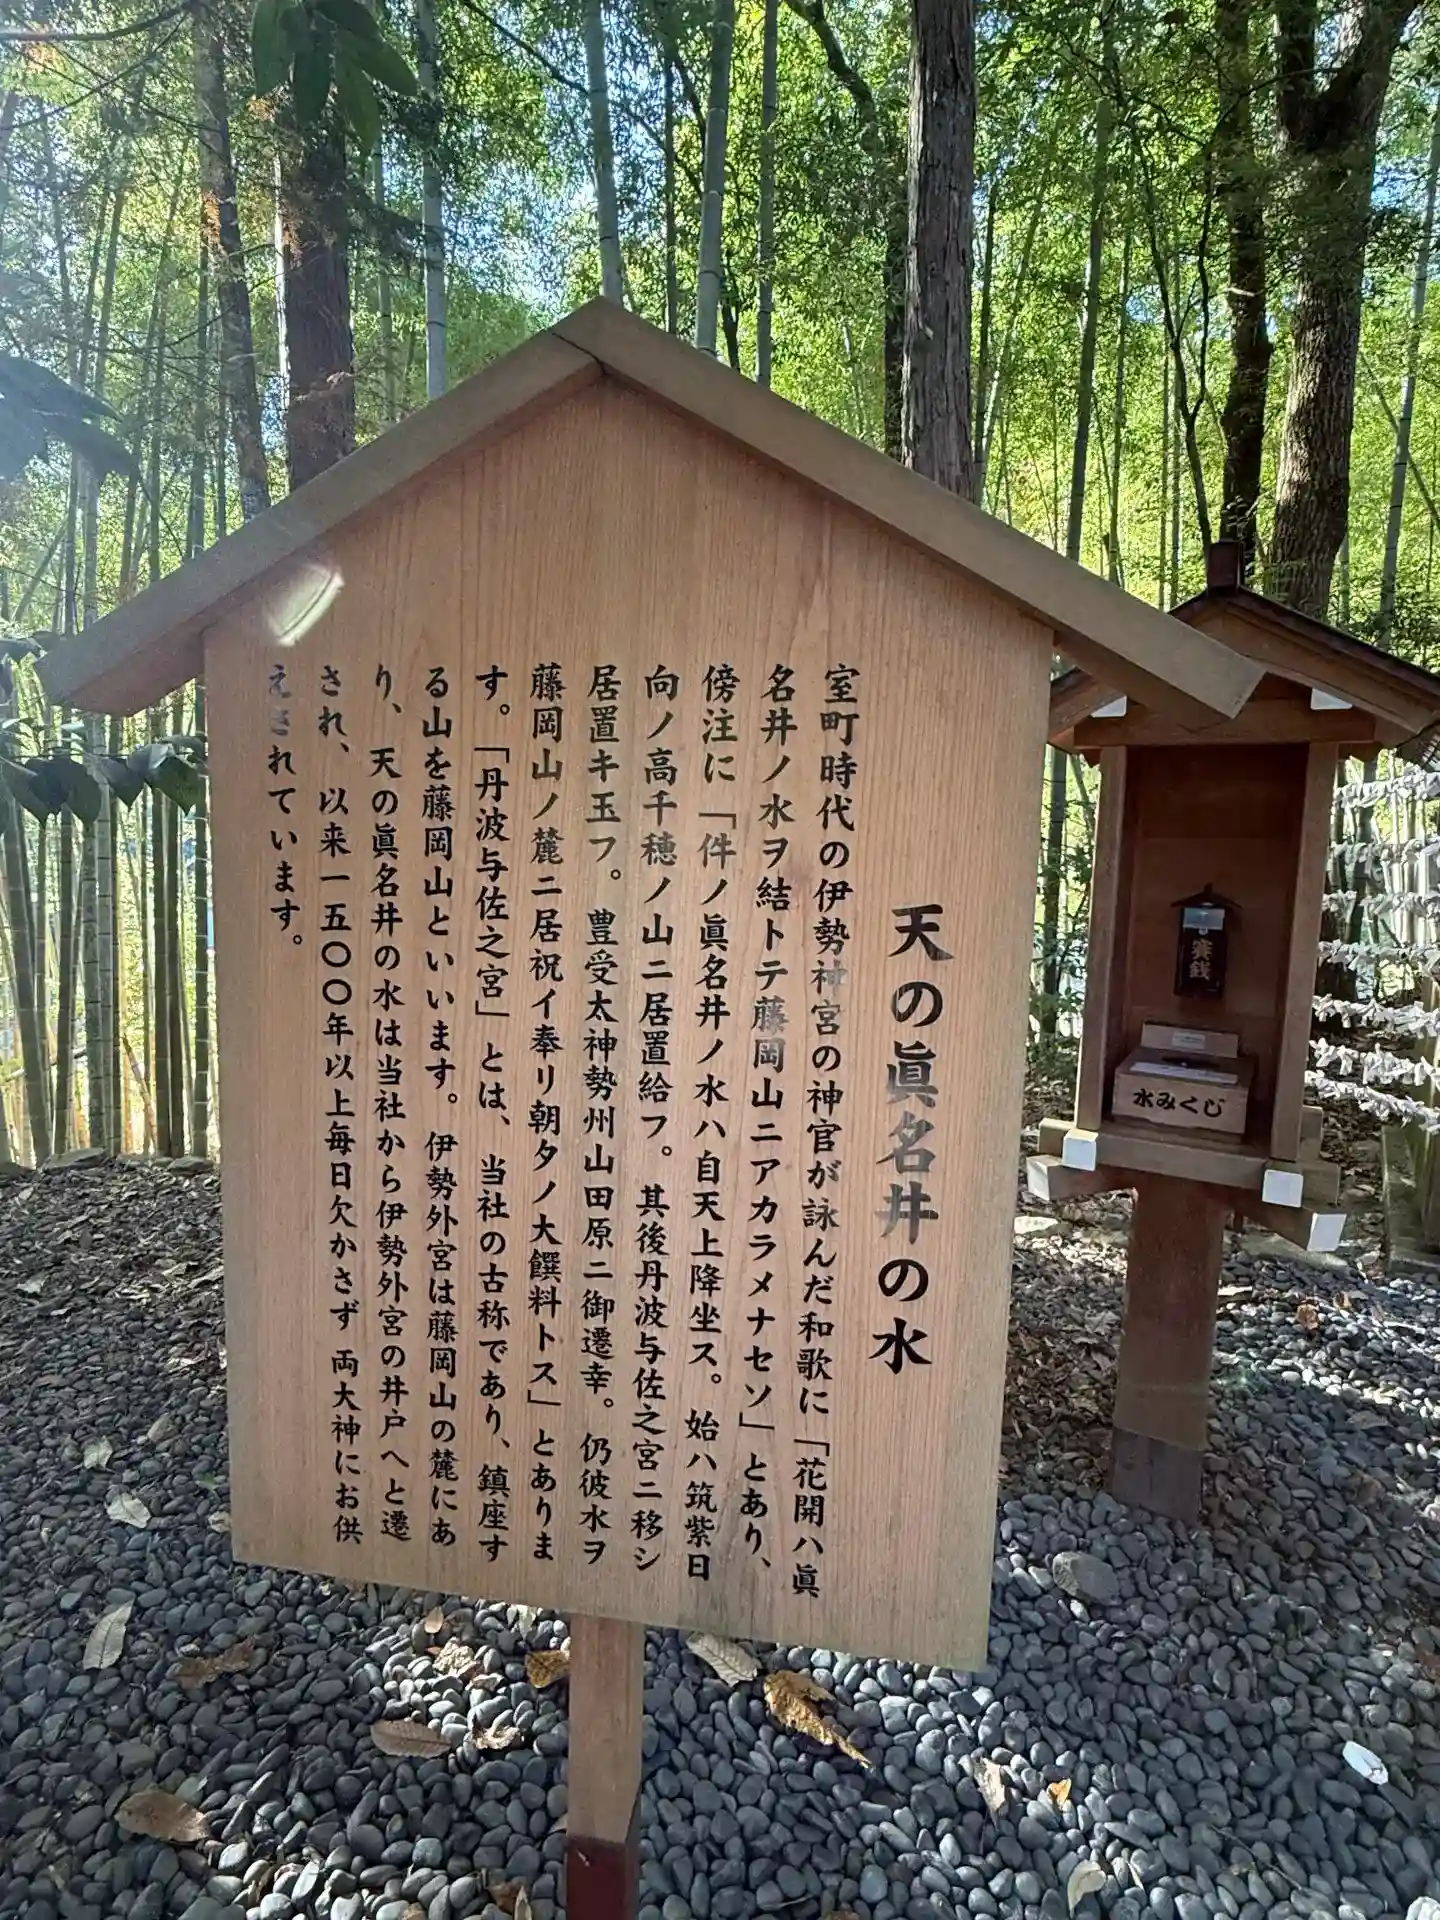 天の眞名井の水
室町時代の伊勢神宮の神官が詠んだ和歌に「花開ハ眞
名井ノ水ヲ結トテ藤岡山ニアカラメナセソ」とあり、
傍注に「件ノ眞名井ノ水ハ自天上降坐ス。始ハ筑紫日
向ノ高千穂ノ山ニ居置給フ。其後丹波与佐之宮ニ移シ
居置キ玉フ。豊受太神勢州山田原ニ御遷幸。仍彼水ヲ
藤岡山ノ麓ニ居祝イ奉リ朝夕ノ大饌料トス」とありま
す。「丹波与佐之宮」とは、当社の古称であり、鎮座す
る山を藤岡山といいます。伊勢外宮は藤岡山の麓にあ
り、天の眞名井の水は当社から伊勢外宮の井戸へと遷
され、以来一五〇〇年以上毎日欠かさず両大神にお供
えされています。
賽銭
水みくじ